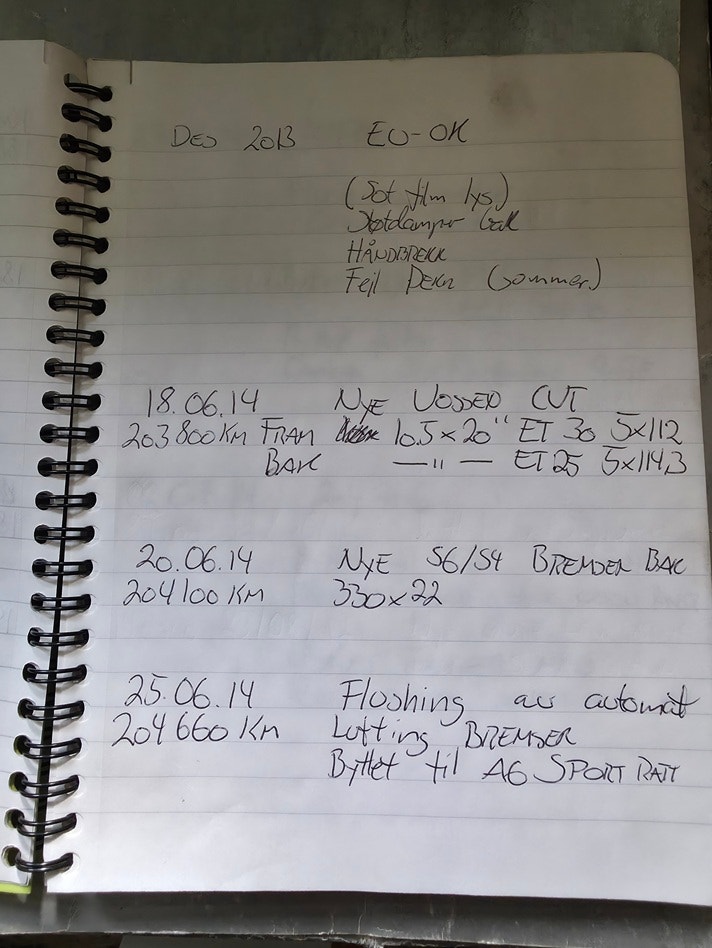 DES 2013 EU-OK
(Sot film lys)
Støtdamper bak
HÅNDBREKK
Feil DEKK (sommer.)
18.06.14 NYE VOSSEN CVT
203800KM FRAM 10.5x20" ET 30 5x112
BAK —"— ET 25 5x114,3
20.06.14 NYE S6/S4 BREMSER BAK
204100KM 330x22
25.06.14 Flushing av automat
204660KM Lufting BREMSER
Byttet til A6 SPORT RATT